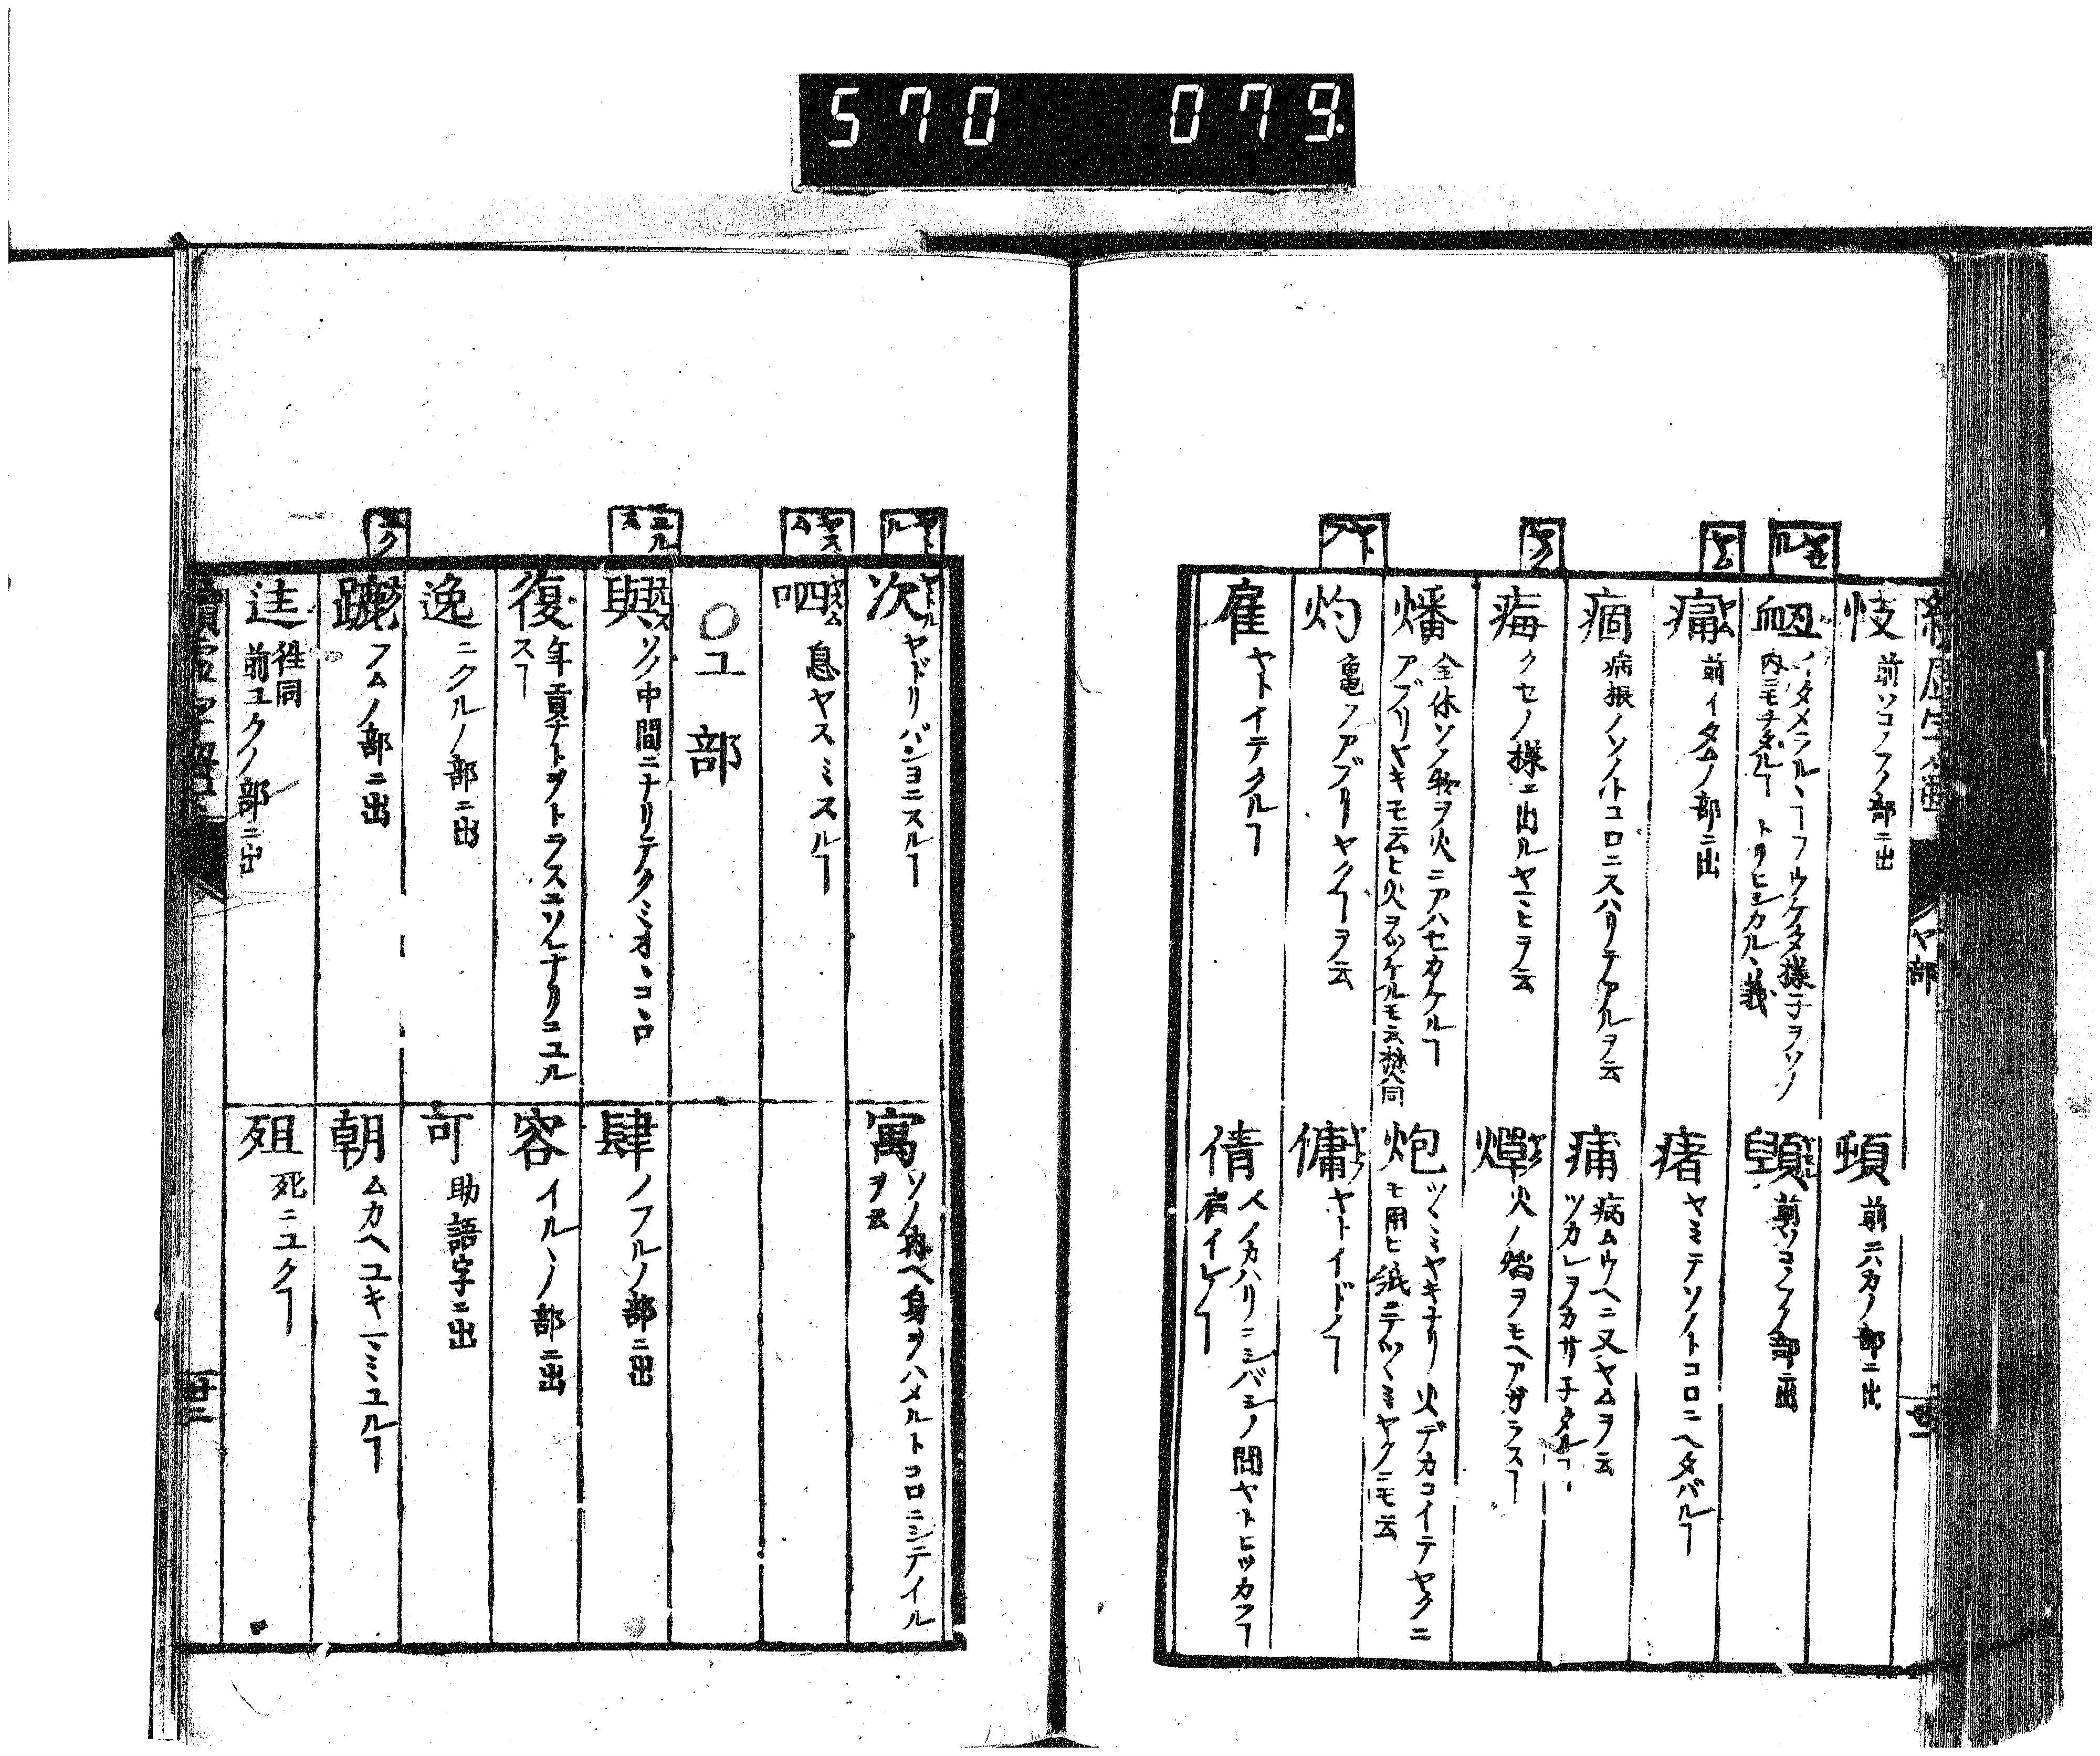 570 079
ヤ部
忮 前ソコノフノ部ニ出
頓 前ニ六カノ部ニ出
衄 イタメラルヽヿフウケタ様子ヲソノ
内ニモチダルヿ トリヒシカルヽ義
前ソコノフノ部ニ出
ヤム
前イタムノ部ニ出
瘏 ヤミテソノトコロニヘタバルヿ
痼 病振ノソノトコロニスハリテアルヲ云
痡 病ムウヘニ又ヤムヲ云
ツカレヲカサ子タルヿ
ヤク
痗 クセノ様ニ出ルヤマヒヲ云
燀 火ノ焰ヲモヘアガラスヿ
燔 全体ソノ物ヲ火ニアハセカケルヿ
アブリヤキモ云ヒ火ヲツケルモ云焚同
炮 ツヽミヤキナリ 火デカコイテヤクニ
モ用ヒ紙ニテツヽミヤクニモ云
ヤトフ
灼 亀ノアブリヤクヿヲ云
傭 ヤトイドノヿ
雇 ヤトイテクルヿ
倩 人ノカハリニシバシノ間ヤトヒツカフヿ
ヤドル
次 ヤドリバショニスルヿ
寓 ソノ内ヘ身ヲハメルトコロニシテイル
ヲ云
ヤスム
呬 息ヤスミスルヿ
○ユ部
ユルス
與 ソノ中間ニナリテタノミオヽコヽロ
肆 ノフルノ部ニ出
復 年貢ナトヲトラスニソレナリニユル
スヿ
容 イルヽノ部ニ出
逸 ニクルノ部ニ出
可 助語字ニ出
ユク
蹠 フムノ部ニ出
朝 ムカヘユキマミユルヿ
迬 徃同
前ユクノ部ニ出
殂 死ニユクヿ
廿二